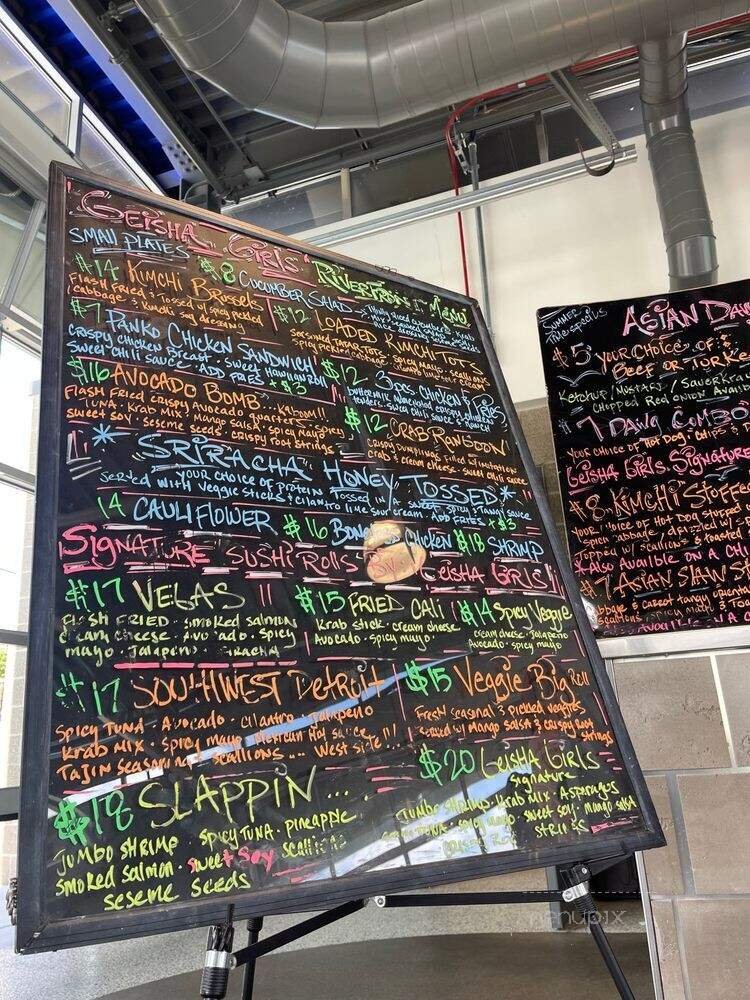 Geisha Girls' Riverfront Menu
Small Plates
$14 Kimchi Brussels
Flash Fried & Tossed w/ spicy pickled
cabbage & kimchi soy dressing
$8 Cucumber Salad
$7 Panko Chicken Sandwich
Crispy Chicken Breast · Sweet Hawaiian Roll
Sweet Chili Sauce · Add Fries + $3
$12 Loaded Kimchi Tots
Seasoned Tatar Tots · Spicy mayo · scallions
$16 Avocado Bomb... Kaboom!!
Flash Fried Crispy Avocado Quarters · Spicy
Tuna · Krab Mix / Mango Salsa / Spicy mayo
Sweet Soy · Seseme Seeds · crispy root strings
$12 3pcs Chicken & Fries
Buttermilk marinated crispy chicken
tenders · sweet chili sauce & ranch
$12 Crab Rangoon
Crispy dumplings filled w/ imitation
Krab & cream cheese · sweet chili sauce
* Sriracha Honey Tossed *
Your choice of protein tossed in a sweet, spicy & tangy sauce
Served with veggie sticks & cilantro lime sour cream · Add Fries + $3
14 Cauliflower $16 Chicken $18 Shrimp
Signature Sushi Rolls By: Geisha Girls!!
$17 Vegas
Flash Fried · Smoked Salmon
Cream cheese · Avocado · Spicy
mayo · Jalapeno · Sriracha
$15 Fried Cali
Krab stick · cream cheese
Avocado · spicy mayo
$14 Spicy Veggie
cream cheese · Jalapeño
Avocado · spicy mayo
$17 Southwest Detroit
Spicy Tuna · Avocado · Cilantro · Jalapeño
Krab Mix · Spicy mayo · Mexican Hot Sauce
Tajin Seasoning · Scallions ... West Side!!!
$15 Veggie Big Roll
Fresh Seasonal & Pickled veggies
served w/ mango salsa & crispy root
strings
$18 Slappin...
Jumbo Shrimp · Spicy Tuna · Pineapple
Smoked Salmon · Sweet Soy · Scallions
Seseme Seeds
$20 Geisha Girls
Signature
Jumbo Shrimp · Krab Mix · Asparagus
Spicy mayo · sweet soy · mango salsa
Summer
Time Specials
Asian
$5 Your Choice of:
Beef or
Ketchup / Mustard /
Chopped Red Onion
$7 Dawg Combo
Your choice of Hot Dog · Chips &
Geisha Girls Signature
$8 Kimchi
Your choice of Hot Dog
Spicy Cabbage /
Topped w/ scallions & toasted
*Also Available on a
$7 Asian Slaw
Cabbage & Carrot tangy
Scallions · Spicy mayo &
menupix